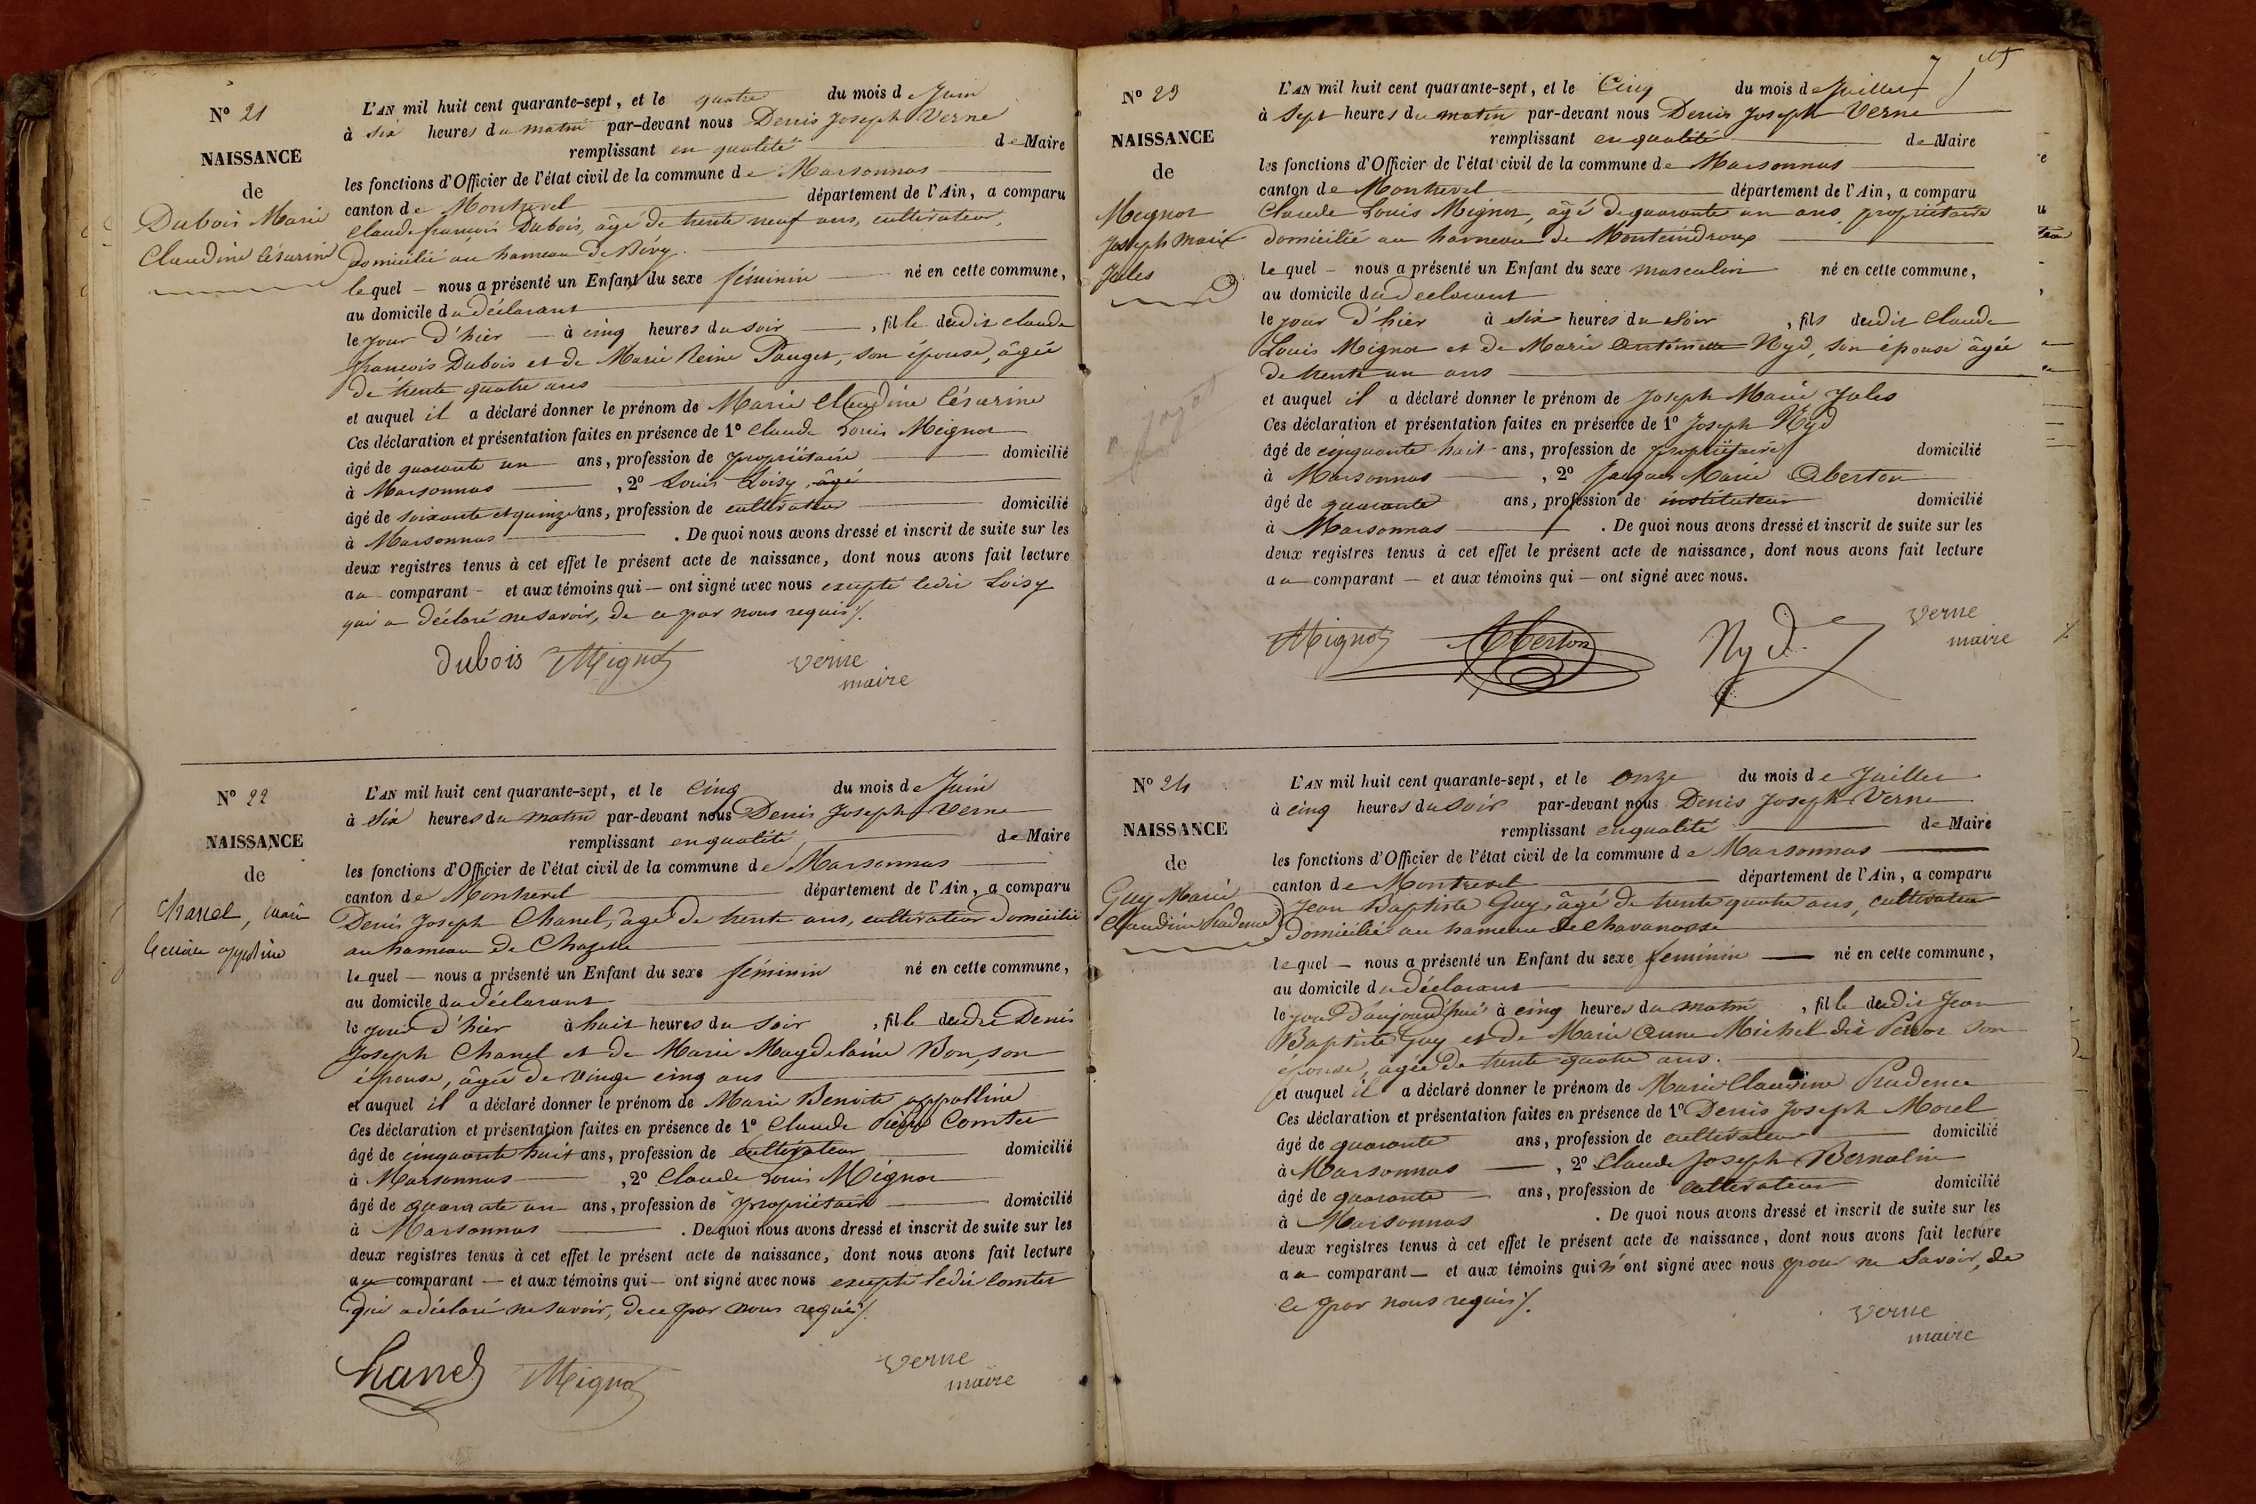 N° 21
NAISSANCE
de
Dubois Marie
Claudine Césarine
L'AN mil huit cent quarante-sept, et le quatre du mois de Juin
à six heures du matin par-devant nous Denis Joseph Verne
remplissant en qualité de Maire
les fonctions d'Officier de l'état civil de la commune de Marsonnas
canton de Montrevel département de l'Ain, a comparu
Claude françois Dubois, âgé de trente neuf ans, cultivateur,
domicilié au hameau de Bévy.
lequel – nous a présenté un Enfant du sexe féminin né en cette commune,
au domicile du déclarant
le jour d'hier à cinq heures du soir, fille dudit Claude
françois Dubois et de Marie Reine Pauget, son épouse, âgée
de trente quatre ans
et auquel il a déclaré donner le prénom de Marie Claudine Césarine
Ces déclaration et présentation faites en présence de 1° Claude Louis Meignot
âgé de quarante un ans, profession de propriétaire domicilié
à Marsonnas, 2° Louis Loisy, âgé
âgé de soixante et quinze ans, profession de cultivateur domicilié
à Marsonnas. De quoi nous avons dressé et inscrit de suite sur les
deux registres tenus à cet effet le présent acte de naissance, dont nous avons fait lecture
au comparant – et aux témoins qui – ont signé avec nous excepté ledit Loisy
qui a déclaré ne savoir, de ce par nous requis ./.
Dubois Mignot Verne
maire
N° 22
NAISSANCE
de
Chanel, Marie
Benoite appoline
L'AN mil huit cent quarante-sept, et le Cinq du mois de Juin
à Six heures du matin par-devant nous Denis Joseph Verne
remplissant en qualité de Maire
les fonctions d'Officier de l'état civil de la commune de Marsonnas
canton de Montrevel département de l'Ain, a comparu
Denis Joseph Chanel, âgé de trente ans, cultivateur domicilié
au hameau de Chazelle
lequel – nous a présenté un Enfant du sexe féminin né en cette commune,
au domicile du déclarant
le jour d'hier à huit heures du soir, fille dudit Denis
Joseph Chanel et de Marie Magdelaine Bon, son
épouse, âgée de vingt cinq ans
et auquel il a déclaré donner le prénom de Marie Benoite appolline
Ces déclaration et présentation faites en présence de 1° Claude Pierre Comtet
âgé de cinquante huit ans, profession de cultivateur domicilié
à Marsonnas, 2° Claude Louis Mignot
âgé de quarante un ans, profession de propriétaire domicilié
à Marsonnas. De quoi nous avons dressé et inscrit de suite sur les
deux registres tenus à cet effet le présent acte de naissance, dont nous avons fait lecture
au comparant – et aux témoins qui – ont signé avec nous excepté ledit Comtet
qui a déclaré ne savoir, de ce par nous requis ./.
Chanel Mignot Verne
maire
N° 23
NAISSANCE
de
Meignot
Joseph Marie
Jules
7
L'AN mil huit cent quarante-sept, et le Cinq du mois de Juillet
à Sept heures du matin par-devant nous Denis Joseph Verne
remplissant en qualité de Maire
les fonctions d'Officier de l'état civil de la commune de Marsonnas
canton de Montrevel département de l'Ain, a comparu
Claude Louis Mignot, âgé de quarante un ans, propriétaire
domicilié au hameau de Monteindroux
lequel – nous a présenté un Enfant du sexe masculin né en cette commune,
au domicile du déclarant
le jour d'hier à six heures du soir, fils dudit Claude
Louis Mignot et de Marie Antoinette Nyd, son épouse âgée
de trente un ans
et auquel il a déclaré donner le prénom de Joseph Marie Jules
Ces déclaration et présentation faites en présence de 1° Joseph Nyd
âgé de cinquante huit ans, profession de propriétaire domicilié
à Marsonnas, 2° Jacques Marie Aberton
âgé de quarante ans, profession de instituteur domicilié
à Marsonnas. De quoi nous avons dressé et inscrit de suite sur les
deux registres tenus à cet effet le présent acte de naissance, dont nous avons fait lecture
au comparant – et aux témoins qui – ont signé avec nous.
Mignot Aberton Nyd Verne
maire
N° 24
NAISSANCE
de
Guy Marie
Claudine Prudence
L'AN mil huit cent quarante-sept, et le onze du mois de Juillet
à cinq heures du soir par-devant nous Denis Joseph Verne
remplissant en qualité de Maire
les fonctions d'Officier de l'état civil de la commune de Marsonnas
canton de Montrevel département de l'Ain, a comparu
Jean Baptiste Guy, âgé de trente quatre ans, cultivateur
domicilié au hameau de Chavanosse
lequel – nous a présenté un Enfant du sexe féminin né en cette commune,
au domicile du déclarant
le jour d'aujourd'hui à cinq heures du matin, fille dudit Jean
Baptiste Guy et de Marie Anne Michel dit Perror son
épouse, âgée de trente quatre ans.
et auquel il a déclaré donner le prénom de Marie Claudine Prudence
Ces déclaration et présentation faites en présence de 1° Denis Joseph Morel
âgé de quarante ans, profession de cultivateur domicilié
à Marsonnas, 2° Claude Joseph Bernalin
âgé de quarante ans, profession de cultivateur domicilié
à Marsonnas. De quoi nous avons dressé et inscrit de suite sur les
deux registres tenus à cet effet le présent acte de naissance, dont nous avons fait lecture
au comparant – et aux témoins qui n'ont signé avec nous pour ne savoir, de
ce par nous requis ./.
Verne
maire